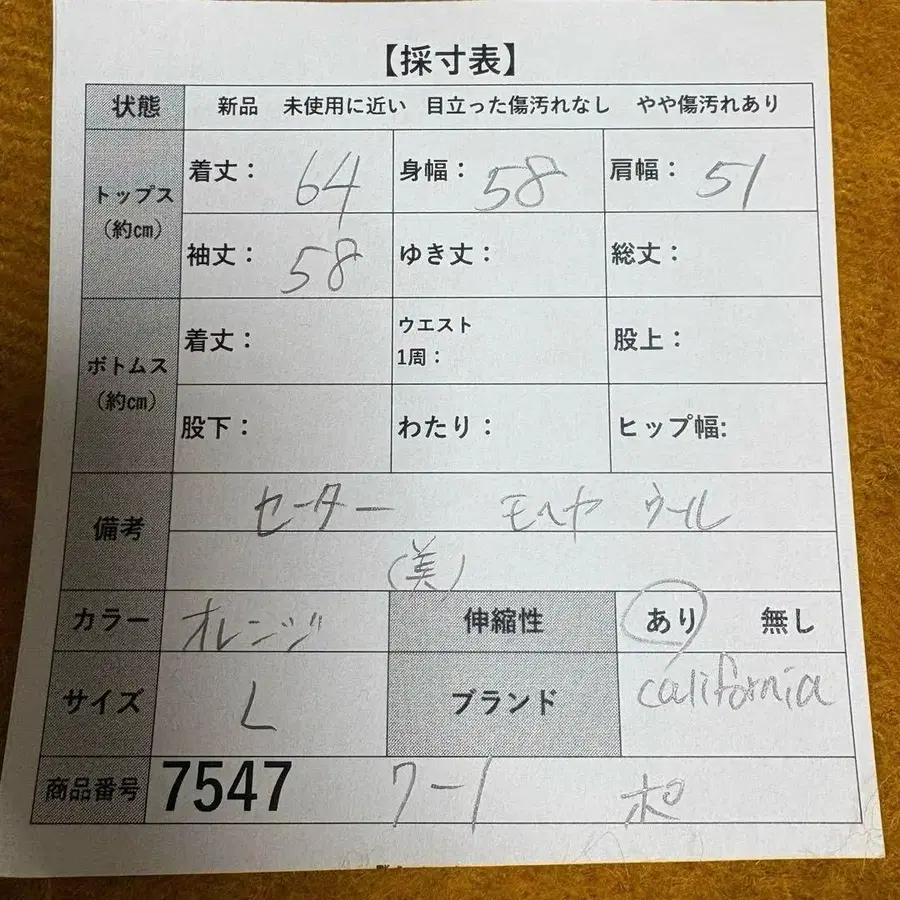 【採寸表】
状態 新品 未使用に近い 目立った傷汚れなし やや傷汚れあり
トップス（約cm）
着丈： 64 身幅： 58 肩幅： 51
袖丈： 58 ゆき丈： 総丈：
ボトムス（約cm）
着丈： ウエスト1周： 股上：
股下： わたり： ヒップ幅:
備考 セーター モヘヤ ウール
（美）
カラー オレンジ 伸縮性 あり 無し
サイズ L ブランド california
商品番号 7547 7-1 ポ